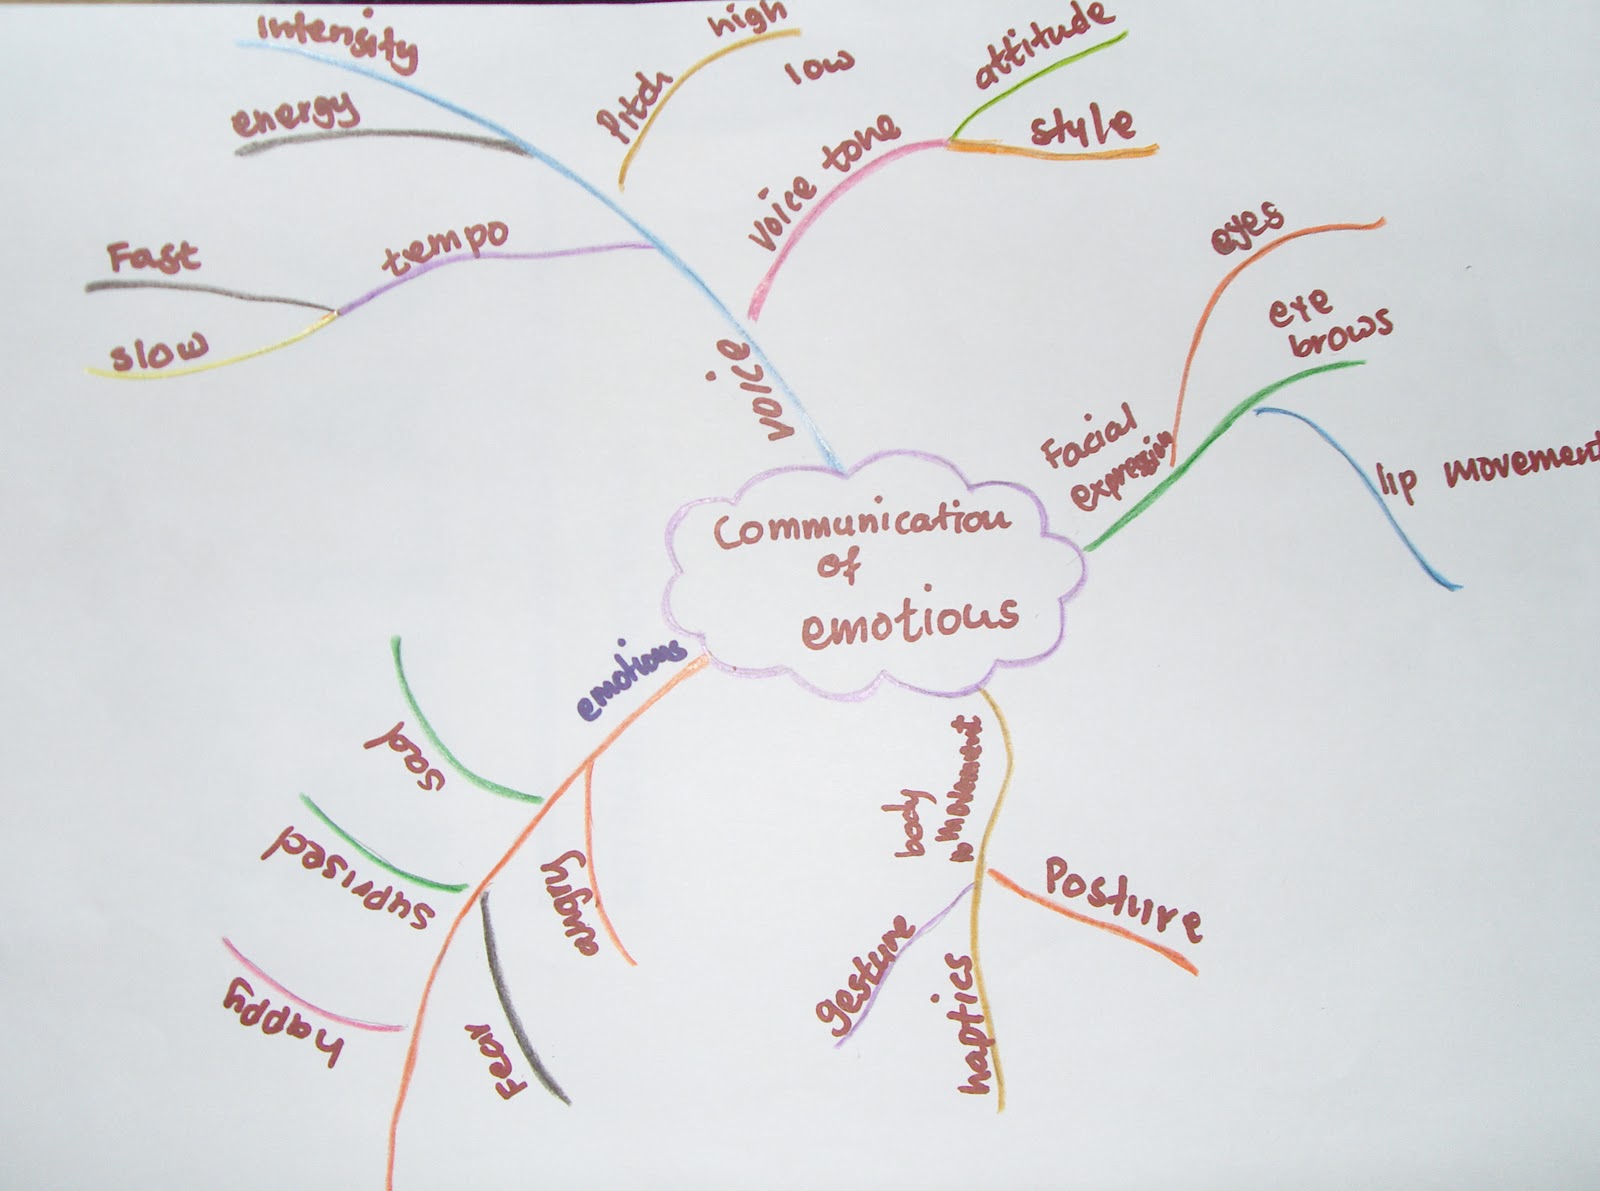 Intensity
energy
Pitch
high
low
attitude
style
voice tone
tempo
Fast
slow
voice
eyes
eye
brows
Facial
expression
lip movement
Communication
of
emotious
emotions
sad
suprised
happy
angry
Fear
body
movement
Posture
gesture
haptics